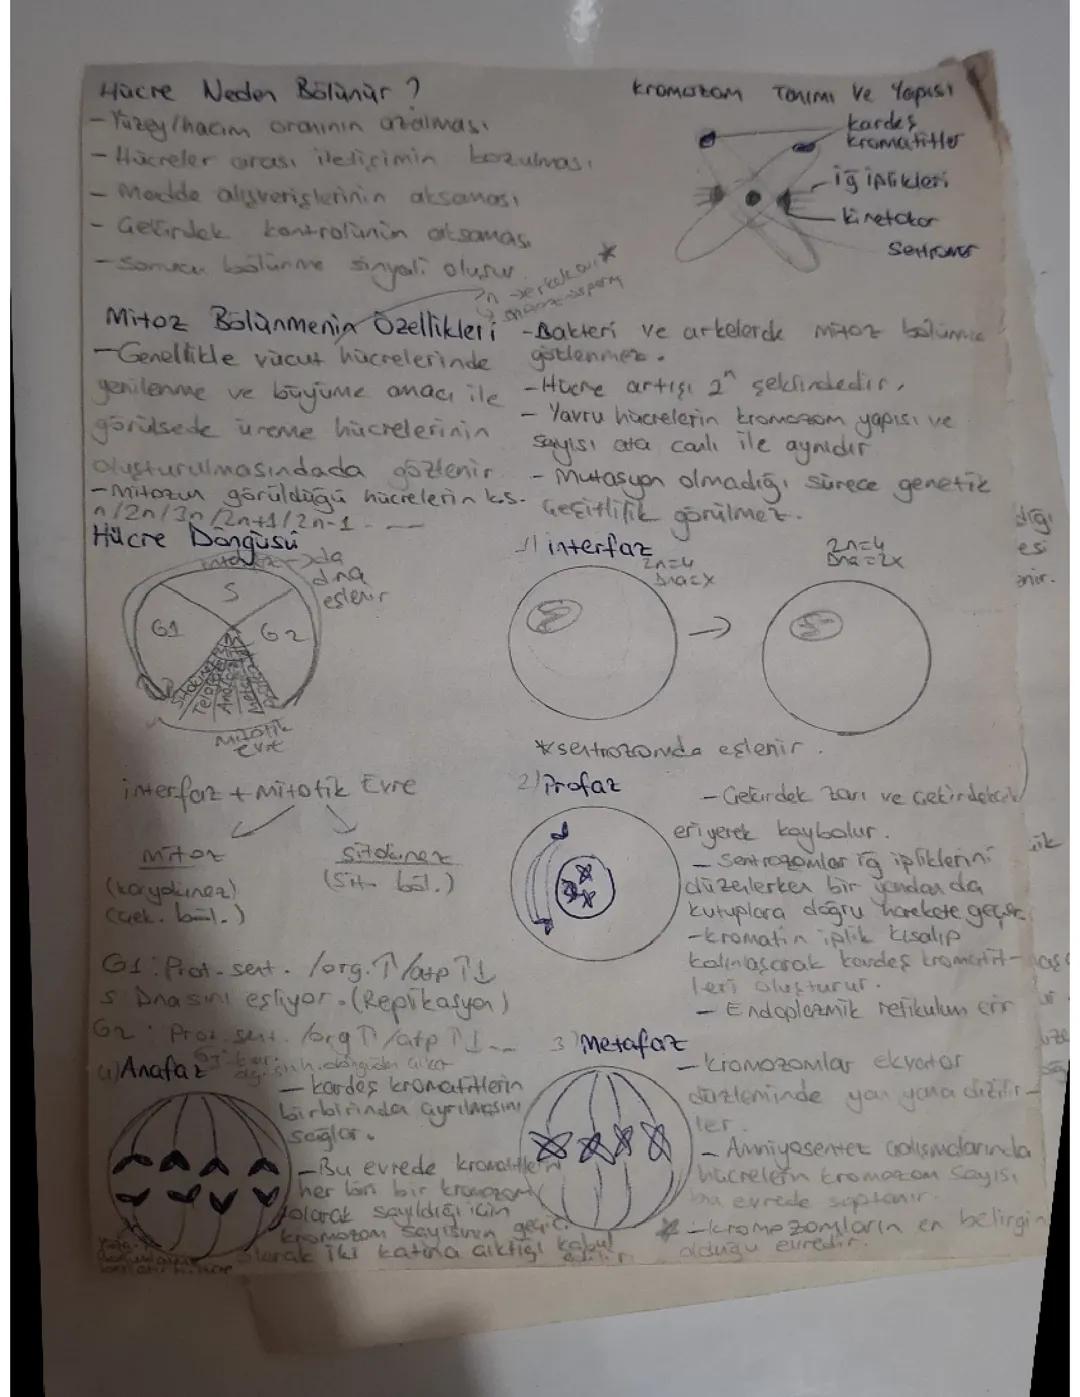 Hücre Neden Bölünür?
- Yüzey/hacim oranının azalması
- Hücreler arası iletişimin bozulması
- Madde alışverişlerinin aksaması
- Gekirdek kontrolünün aksaması
- Sonucu bölünme sinyali oluşur.
Kromozom Tanımı Ve Yapısı
kardeş
kromatitler
iğ iplikleri
kinetokor
Sentromer
Mitoz Bölünmenin Özellikleri
- Genellikle vücut hücrelerinde
yenilenme ve büyüme amacı ile
görülsede üreme hücrelerinin
oluşturulmasındada gözlenir
- Mitozun görüldüğü hücrelerin k.s.
n/2n/3n/2n+1/2n-1
n → erkek arı *
- Bakteri ve arkelerde mitoz bölünme
gözlenmez.
- Hücre artışı 2ⁿ şeklindedir.
- Yavru hücrelerin kromozom yapısı ve
sayısı ata canlı ile aynıdır
- Mutasyon olmadığı sürece genetik
Çeşitlilik görülmez.
Hücre Döngüsü
da
dna
eşlenir
S
G1
G2
Mitotik
Evre
interfaz + Mitotik Evre
mitoz
(karyokinez)
(çek. böl.)
Sitokinez
(Sit. böl.)
G1: Prot. sent. /org.↑/atp↑↓
S Dnasını eşliyor. (Replikasyon)
G2: Prot. sent. /org↑/atp↑↓
1) interfaz
2n=4
Dna=x
2n=4
Dna=2x
* sentrozomda eşlenir.
2) Profaz
- Gekirdek zarı ve Gekirdekcik
eriyerek kaybolur.
- Sentrozomlar iğ ipliklerini
düzenlerken bir yandan da
kutuplara doğru harekete geçer
- kromatin iplik kısalıp
kalınlaşarak kardeş kromatit-
leri oluşturur.
- Endoplazmik retikulum erir
3) Metafaz
- kromozomlar ekvator
düzleminde yan yana dizilir-
ler.
- Amniyosentez çalışmalarında
hücrelerin kromozom sayısı
bu evrede saptanır.
* - kromozomların en belirgin
olduğu evredir.
4) Anafaz
- kardeş kromatitlerin
birbirinda ayrılmasını
sağlar.
- Bu evrede kromatitlerin
her biri bir kromozom
olarak sayıldığı için
kromozom sayısının geçici
olarak iki katına çıktığı kabul
edilir